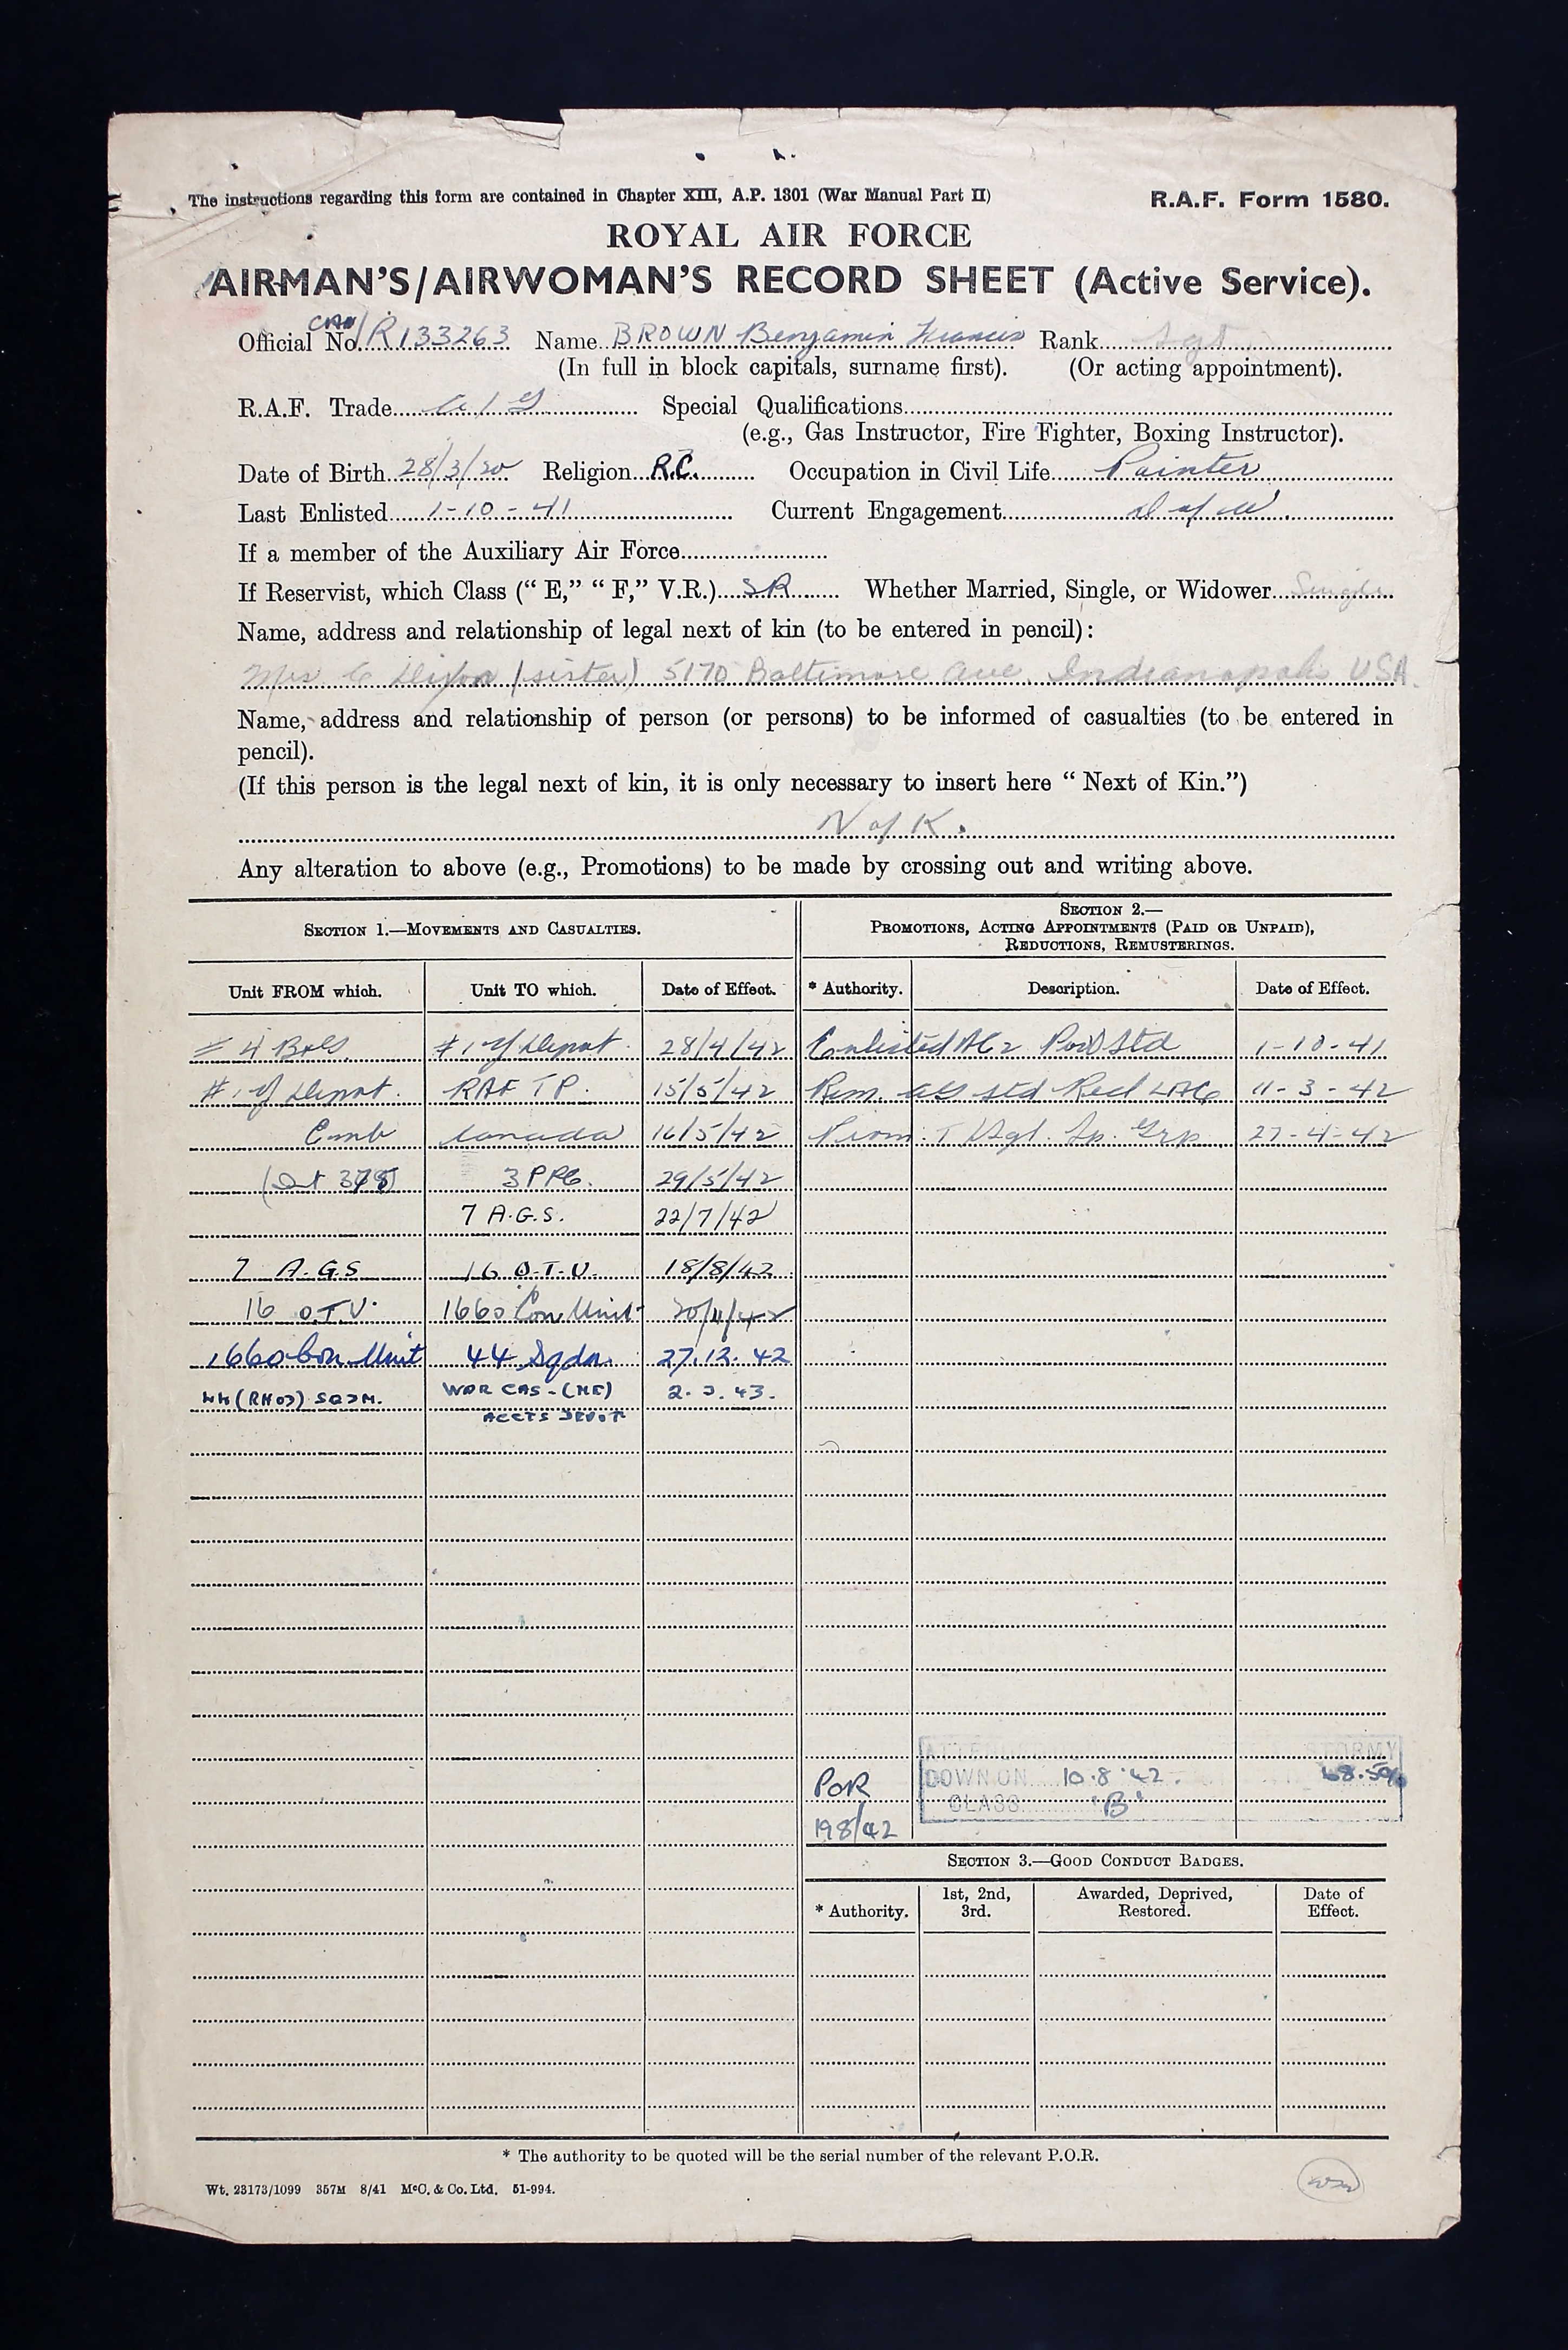 The instructions regarding this form are contained in Chapter XIII, A.P. 1301 (War Manual Part II) R.A.F. Form 1580.
ROYAL AIR FORCE
AIRMAN'S/AIRWOMAN'S RECORD SHEET (Active Service).
Official No. CAN/R133263 Name BROWN Benjamin Francis Rank Sgt
(In full in block capitals, surname first). (Or acting appointment).
R.A.F. Trade A/G Special Qualifications
(e.g., Gas Instructor, Fire Fighter, Boxing Instructor).
Date of Birth 28/3/20 Religion R.C. Occupation in Civil Life Painter
Last Enlisted 1-10-41 Current Engagement D of W.
If a member of the Auxiliary Air Force
If Reservist, which Class (“ E,” “ F,” V.R.) SR Whether Married, Single, or Widower Single
Name, address and relationship of legal next of kin (to be entered in pencil):
Mrs C Dixon (sister) 5170 Baltimore Ave. Indianapolis USA.
Name, address and relationship of person (or persons) to be informed of casualties (to be entered in
pencil).
(If this person is the legal next of kin, it is only necessary to insert here “ Next of Kin.”)
N of K.
Any alteration to above (e.g., Promotions) to be made by crossing out and writing above.
SECTION 1.—MOVEMENTS AND CASUALTIES.
SECTION 2.—
PROMOTIONS, ACTING APPOINTMENTS (PAID OR UNPAID),
REDUCTIONS, REMUSTERINGS.
Unit FROM which. Unit TO which. Date of Effect. * Authority. Description. Date of Effect.
# 4 B&GS #1 Y Depot. 28/4/42 Enlisted AC2 Std 1-10-41
#1 Y Depot. RAF TP. 15/5/42 Rem. AG std Recl LAC 11-3-42
Emb Canada 16/5/42 Prom. T/Sgt. Sp. Grp. 27-4-42
3 PRC. 29/5/42
7 A.G.S. 22/7/42
7 A.G.S 16 O.T.U. 18/8/42
16 O.T.U. 1660 Con Unit 20/11/42
1660 Con Unit 44 Sqdn. 27.12.42
44 (RHOD) SQDN. WOR CAS-(NE) 2.3.43.
ACCTS DEPOT
ATTENDED STORMY
POR DOWN ON 10.8.42. 68.5%
CLASS 'B'
198/42
SECTION 3.—GOOD CONDUCT BADGES.
* Authority. 1st, 2nd, 3rd. Awarded, Deprived, Restored. Date of Effect.
* The authority to be quoted will be the serial number of the relevant P.O.R.
Wt. 23173/1099 357M 8/41 McC. & Co. Ltd. 51-994.